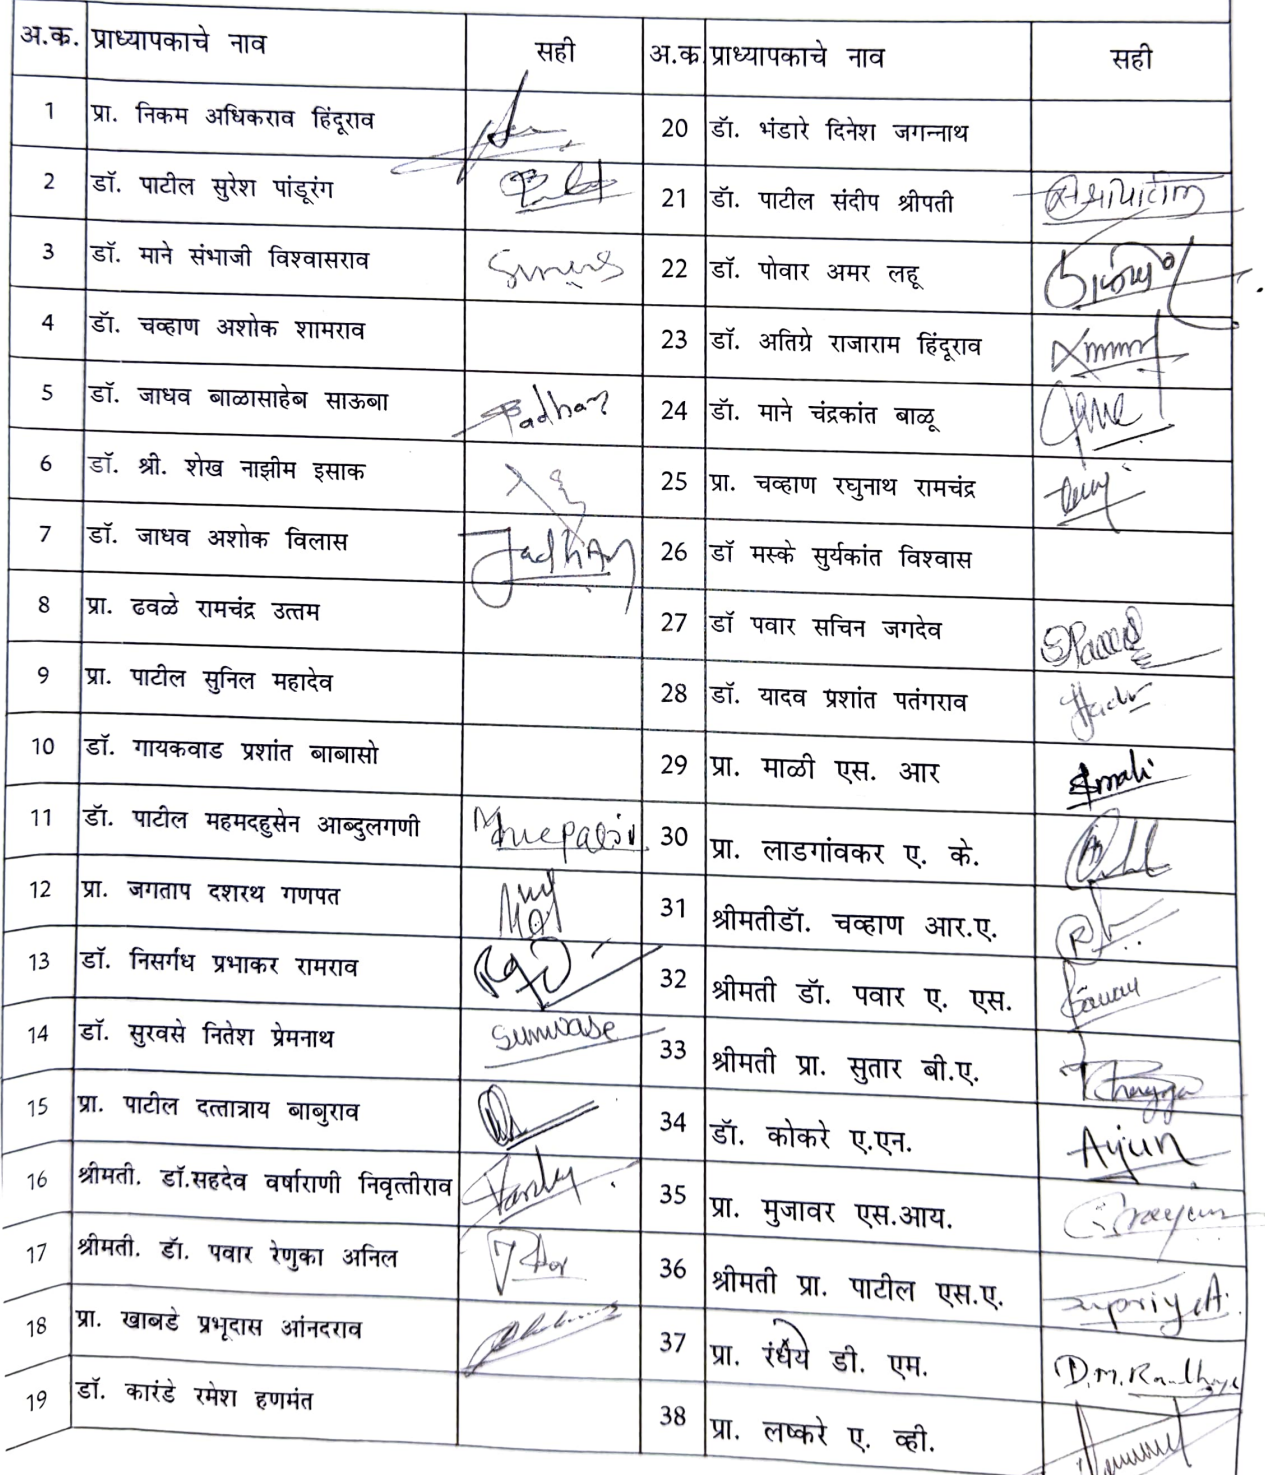 अ.क. प्राध्यापकाचे नाव सही अ.क प्राध्यापकाचे नाव सही
1 प्रा. निकम अधिकराव हिंदूराव 20 डॅा. भंडारे दिनेश जगन्नाथ
2 डॉ. पाटील सुरेश पांडूरंग 21 डॅा. पाटील संदीप श्रीपती
3 डॉ. माने संभाजी विश्वासराव 22 डॅा. पोवार अमर लहू
4 डॅा. चव्हाण अशोक शामराव 23 डॅा. अतिग्रे राजाराम हिंदूराव
5 डॅा. जाधव बाळासाहेब साऊबा Jadhav 24 डॅा. माने चंद्रकांत बाळू
6 डॅा. श्री. शेख नाझीम इसाक 25 प्रा. चव्हाण रघुनाथ रामचंद्र
7 डॅा. जाधव अशोक विलास Jadhav 26 डॉ मस्के सुर्यकांत विश्वास
8 प्रा. ढवळे रामचंद्र उत्तम 27 डॉ पवार सचिन जगदेव
9 प्रा. पाटील सुनिल महादेव 28 डॅा. यादव प्रशांत पतंगराव
10 डॅा. गायकवाड प्रशांत बाबासो 29 प्रा. माळी एस. आर Smali
11 डॅा. पाटील महमदहुसेन आब्दुलगणी 30 प्रा. लाडगांवकर ए. के.
12 प्रा. जगताप दशरथ गणपत 31 श्रीमतीडॅा. चव्हाण आर.ए.
13 डॉ. निसर्गंध प्रभाकर रामराव 32 श्रीमती डॅा. पवार ए. एस.
14 डॉ. सुरवसे नितेश प्रेमनाथ Survase 33 श्रीमती प्रा. सुतार बी.ए.
15 प्रा. पाटील दत्तात्राय बाबुराव 34 डॅा. कोकरे ए.एन. Arjun
16 श्रीमती. डॉ.सहदेव वर्षाराणी निवृत्तीराव 35 प्रा. मुजावर एस.आय.
17 श्रीमती. डॅा. पवार रेणुका अनिल 36 श्रीमती प्रा. पाटील एस.ए. supriya A.
18 प्रा. खाबडे प्रभूदास आंनदराव 37 प्रा. रंधेये डी. एम. D.M.Randheye
19 डॅा. कारंडे रमेश हणमंत 38 प्रा. लष्करे ए. व्ही.